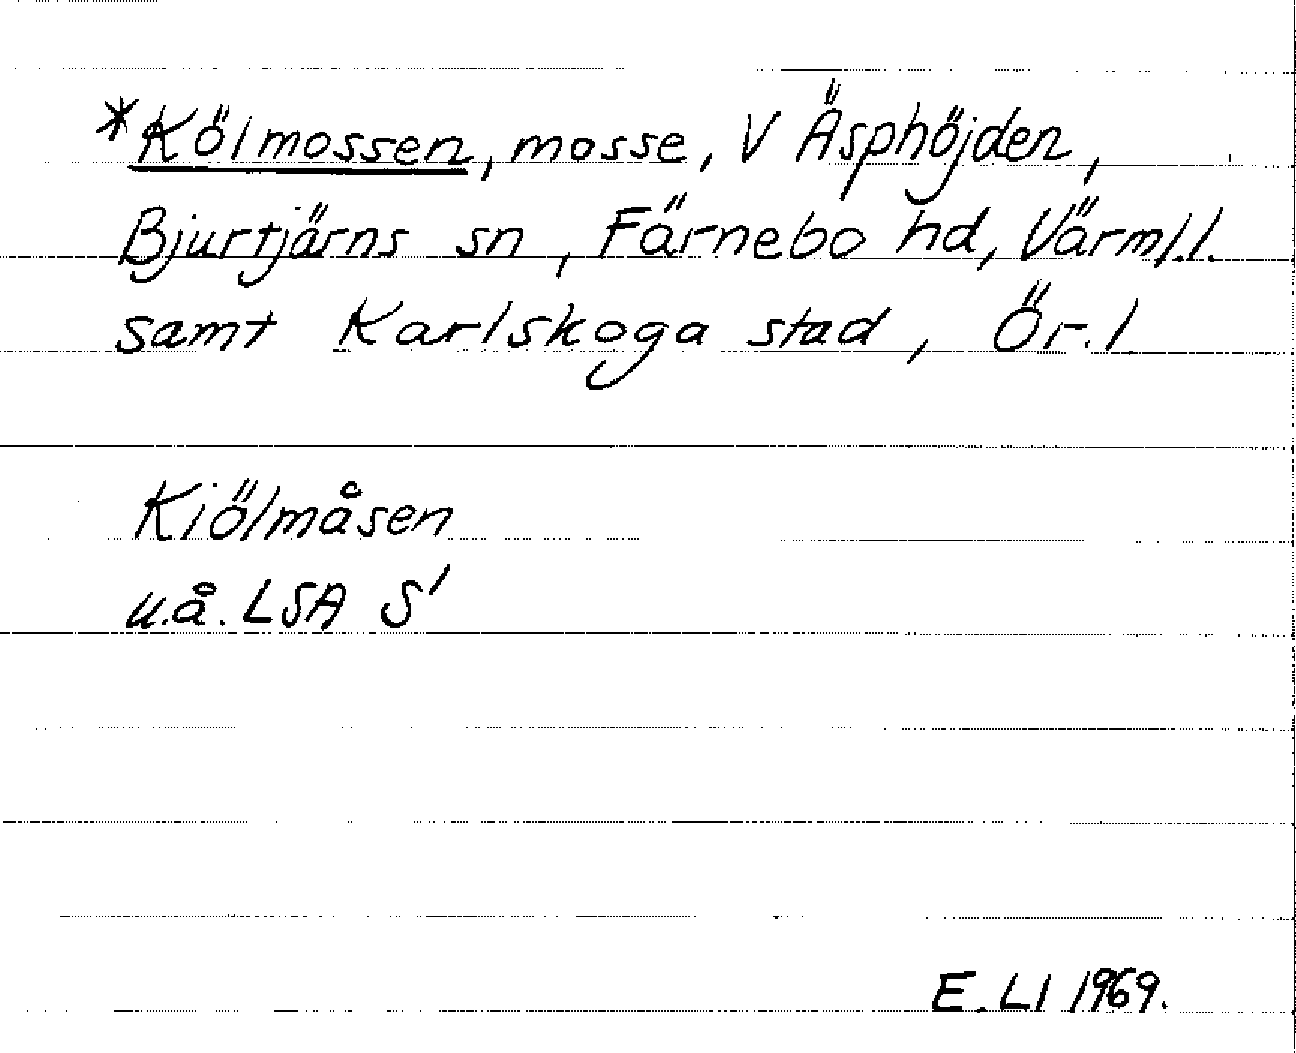 *Kölmossen, mosse, V Äsphöjden,
Bjurtjärns sn, Färnebo hd, Värml.l.
samt Karlskoga stad, Ör. l
Kiölmåsen
u.å. LSA S'
E. LI 1969.